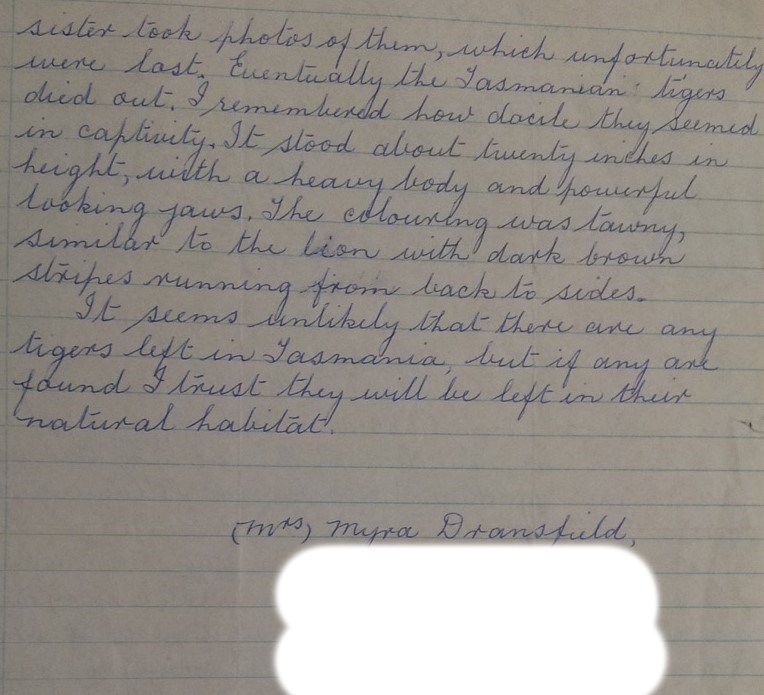 sister took photos of them, which unfortunately
were lost. Eventually the Tasmanian tigers
died out. I remembered how docile they seemed
in captivity. It stood about twenty inches in
height, with a heavy body and powerful
looking jaws. The colouring was tawny,
similar to the lion with dark brown
stripes running from back to sides.
It seems unlikely that there are any
tigers left in Tasmania, but if any are
found I trust they will be left in their
natural habitat.
(Mrs) Myra Dransfield,